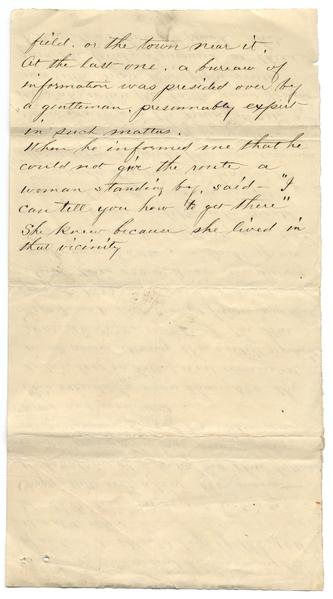 field. or the town near it.
At the last one. a bureau of
information was presided over by
a gentleman. presumably expert
in such matters.
When he informed me that he
could not give the route a
woman standing by, said - "I
can tell you how to get there"
She knew because she lived in
that vicinity